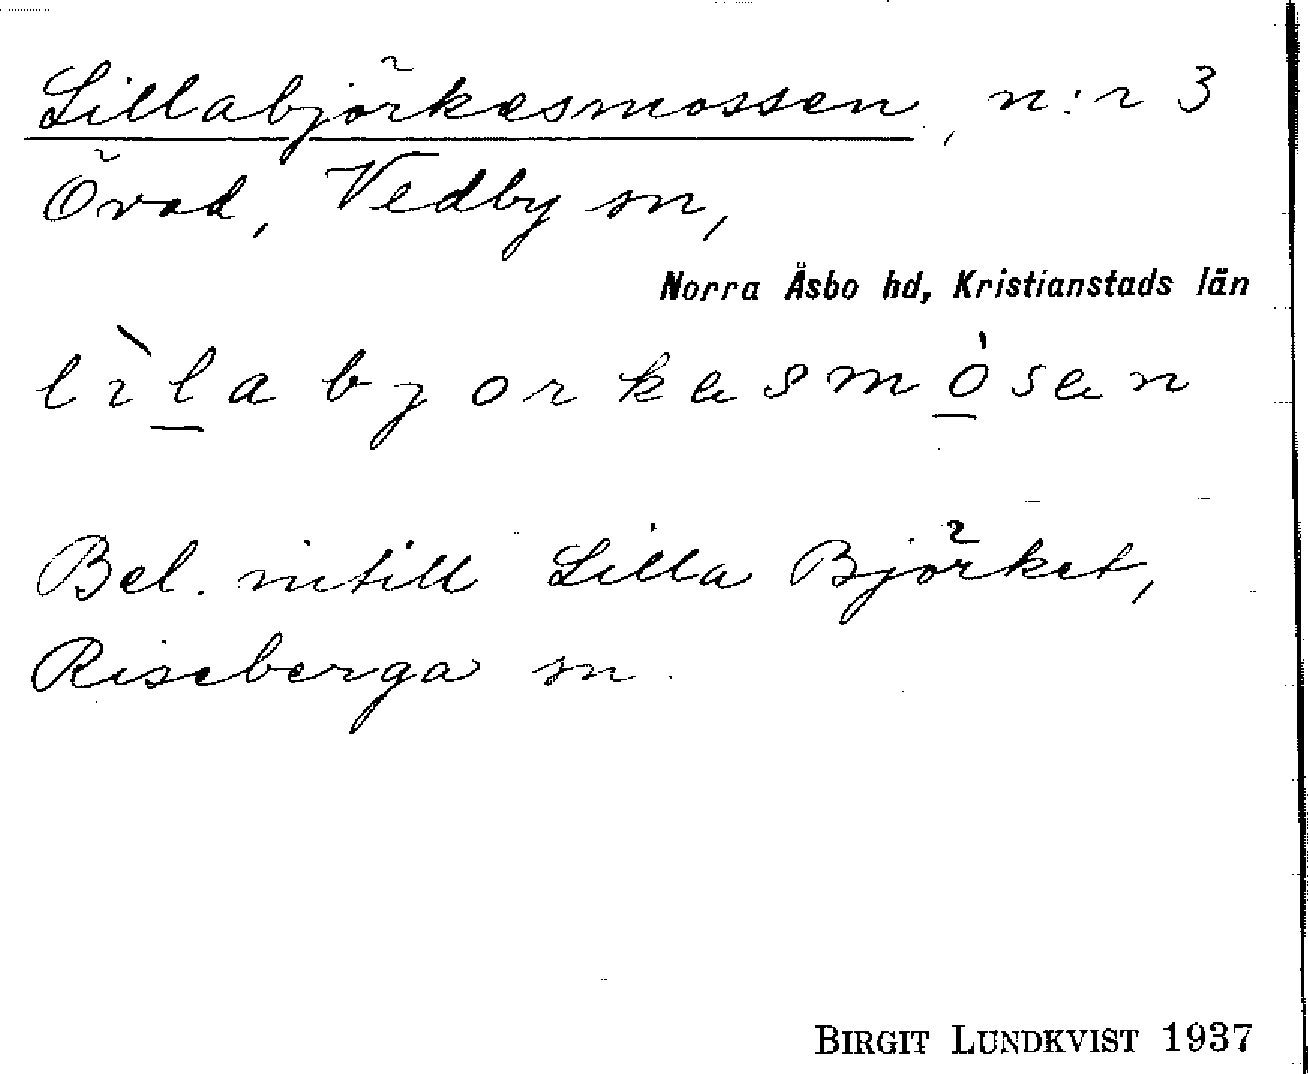 Lillabjörkesmossen, n:r 3
Övad, Vedby sn,
Norra Åsbo hd, Kristianstads län
lìlabjorkasmósan
Bel. intill Lilla Björket,
Riseberga sn.
BIRGIT LUNDKVIST 1937